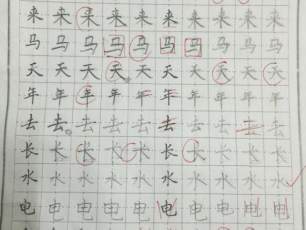 来来来来来来来来来来
马马马马马马马马马马
天天天天天天天天天天
年年年年年年年年年年
去去去去去去去去去去
长长长长长长长长长长
水水水水水水水水水水
电电电电电电电电电电